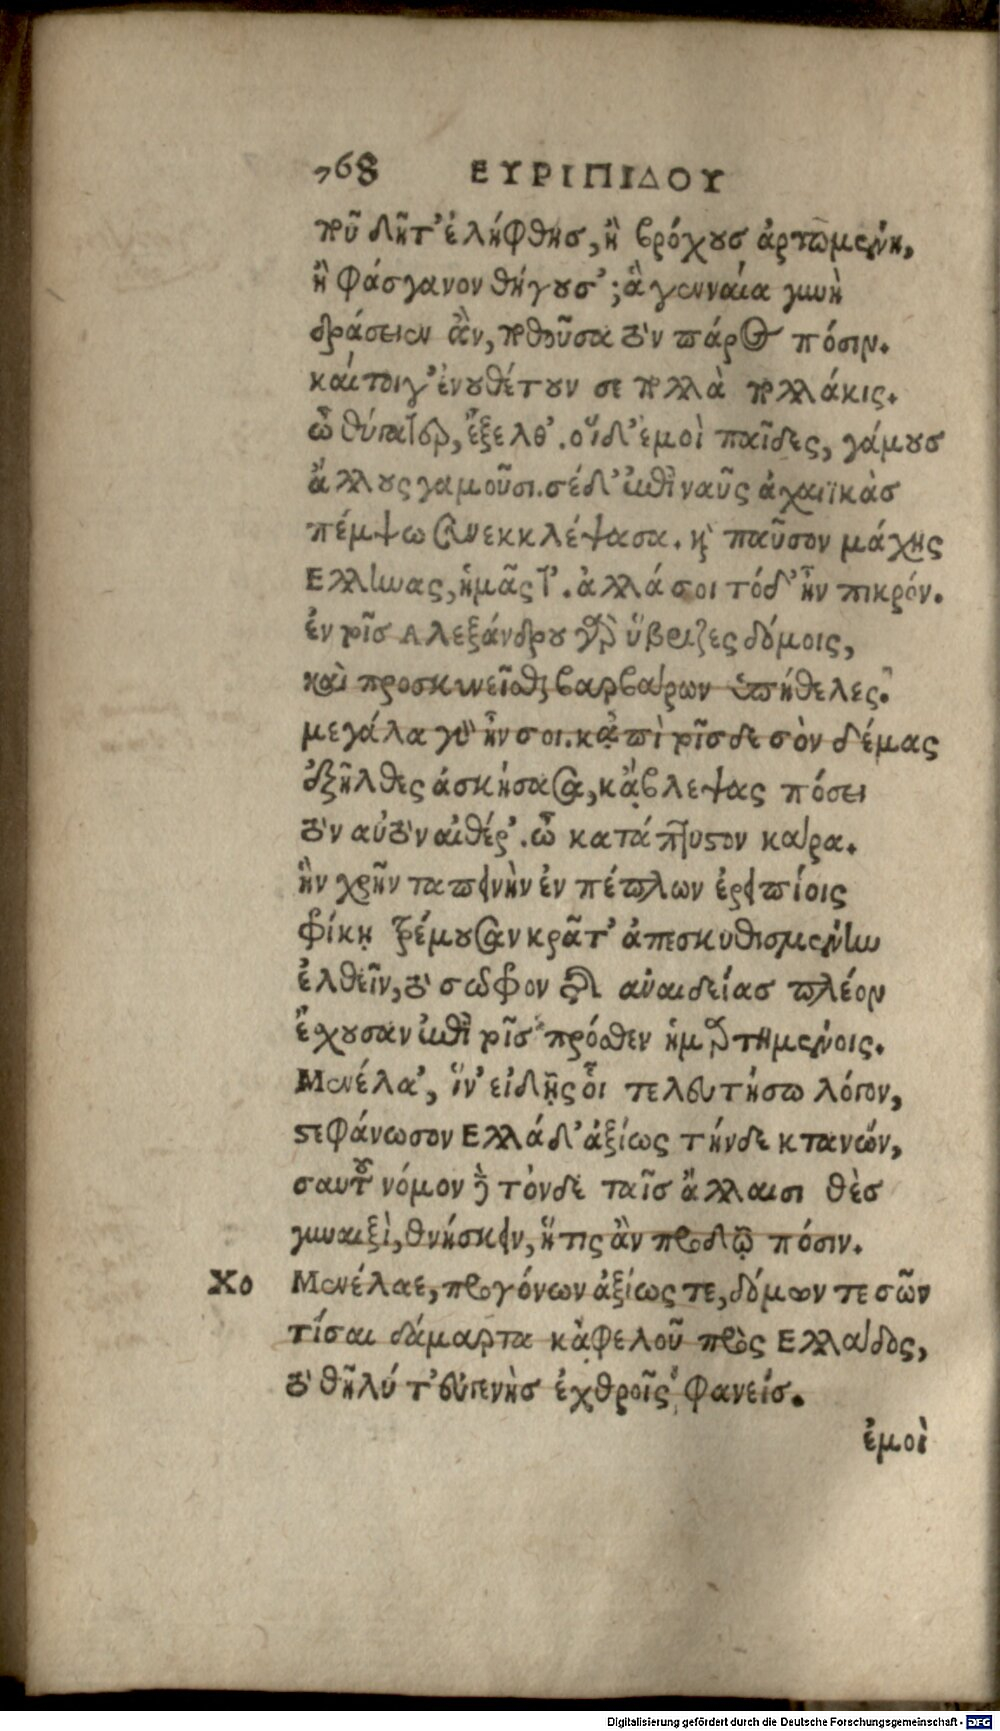 768 ΕΥΡΙΠΙΔΟΥ
ποῦ δῆτ' ἐλήφθησ, ἢ βρόχουσ ἀρτωμένη,
ἢ φάσγανον θήγουσ'; ἃ γενναία γυνὴ
δράσειεν ἂν, ποθοῦσα τὸν πάρος πόσιν.
καίτοιγ' ἐνουθέτουν σε πολλὰ πολλάκις.
ὦ θύγατερ, ἔξελθ'. οἵδ' ἐμοὶ παῖδες, γάμουσ
ἄλλους γαμοῦσι. σέδ' ἐπὶ ναῦς ἀχαιϊκὰσ
πέμψω συνεκκλέψασα. καὶ παῦσον μάχης
Ελληνας, ἡμᾶς τ'. ἀλλά σοι τόδ' ἦν πικρόν.
ἐν τοῖσ Αλεξάνδρου γὰρ ὕβριζες δόμοις,
καὶ προσκυνεῖσθαι βαρβάρων ὑπήθελες.
μεγάλα γὰρ ἦν σοι. κᾀπὶ τοῖσδε σὸν δέμας
ἐξῆλθες ἀσκήσασα, κᾄβλεψας πόσει
τὸν αὐτὸν αἰθέρ'. ὦ κατάπτυστον κάρα.
ἣν χρῆν ταπεινὴν ἐν πέπλων ἐρειπίοις
φρίκῃ τρέμουσαν κρᾶτ' ἀπεσκυθισμένην
ἐλθεῖν, τὸ σῶφρον τῆς ἀναιδείασ πλέον
ἔχουσαν ἐπὶ τοῖσ πρόσθεν ἡμαρτημένοις.
Μενέλα', ἵν' εἰδῇς οἷ τελευτήσω λόγον,
στεφάνωσον Ελλάδ' ἀξίως τήνδε κτανών,
σαυτοῦ νόμον δὲ τόνδε ταῖσ ἄλλαισι θὲσ
γυναιξὶ, θνήσκειν, ἥτις ἂν προδῷ πόσιν.
Χο Μενέλαε, προγόνων ἀξίως τε, δόμων τε σῶν
τίσαι δάμαρτα κᾀφελοῦ πρὸς Ελλάδος,
τὸ θῆλύ τ' εὐγενὴσ ἐχθροῖς φανείσ.
ἐμοὶ
Digitalisierung gefördert durch die Deutsche Forschungsgemeinschaft - DFG